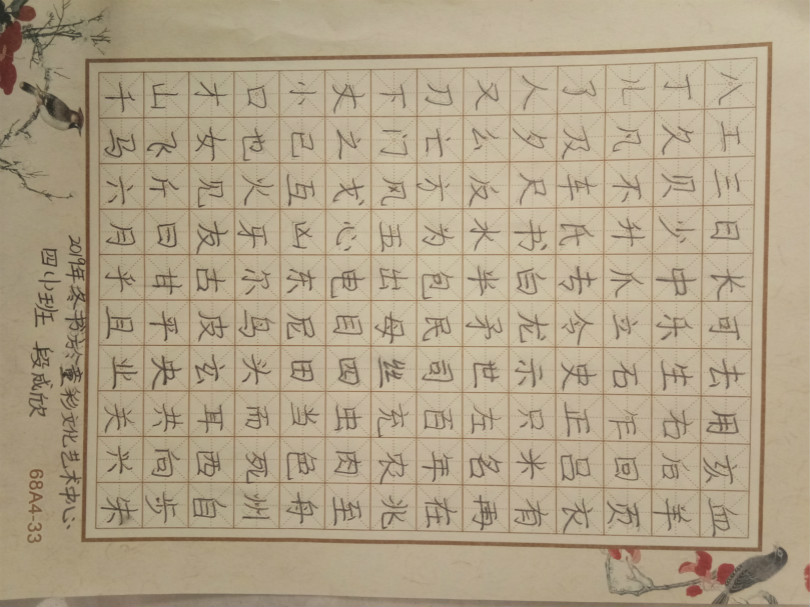 八丁儿了人又刀下丈小口才山千
工久凡及夕么亡门之已也女飞马
三贝不车尺反方风戈互火见斤六
日少升氏书水为五心凶牙友回月
长中爪考白半包出电东尔古甘乎
可乐立令龙矛民母目尼鸟皮平且
去生石史示世司丝四田头玄央业
用右乍正只左百充虫当而耳共关
亥后回吕米名年农肉色死西向兴
血羊页衣有再在兆至舟州自步朱
2019年冬书于童彩文化艺术中心
四小班 段成欣
68A4-33